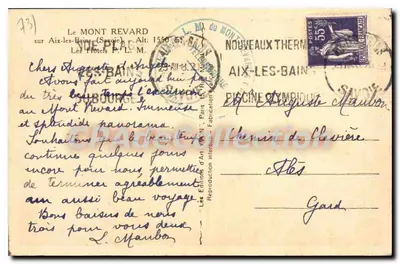 73)
Le MONT REVARD
sur Aix-les-Bains (Savoie) - Alt. 1550
Les Hôtels P. L. M.
Chers Auguste et
Avons fait aujourd'hui par
très beau temps l'excursion
au Mont Revard. Immense
et splendide panorama.
Souhaitons que le beau temps
continue quelques jours
encore pour nous permettre
de terminer agréablement
un aussi beau voyage.
Bons baisers de nous
trois pour vous deux
L. Maubon
P. L. M. du MONT REVARD
NOUVEAUX THERMES
AIX-LES-BAINS
PISCINE
55c
SAVOIE
Auguste Maubon
Chemin du Clavier
Alès
Gard